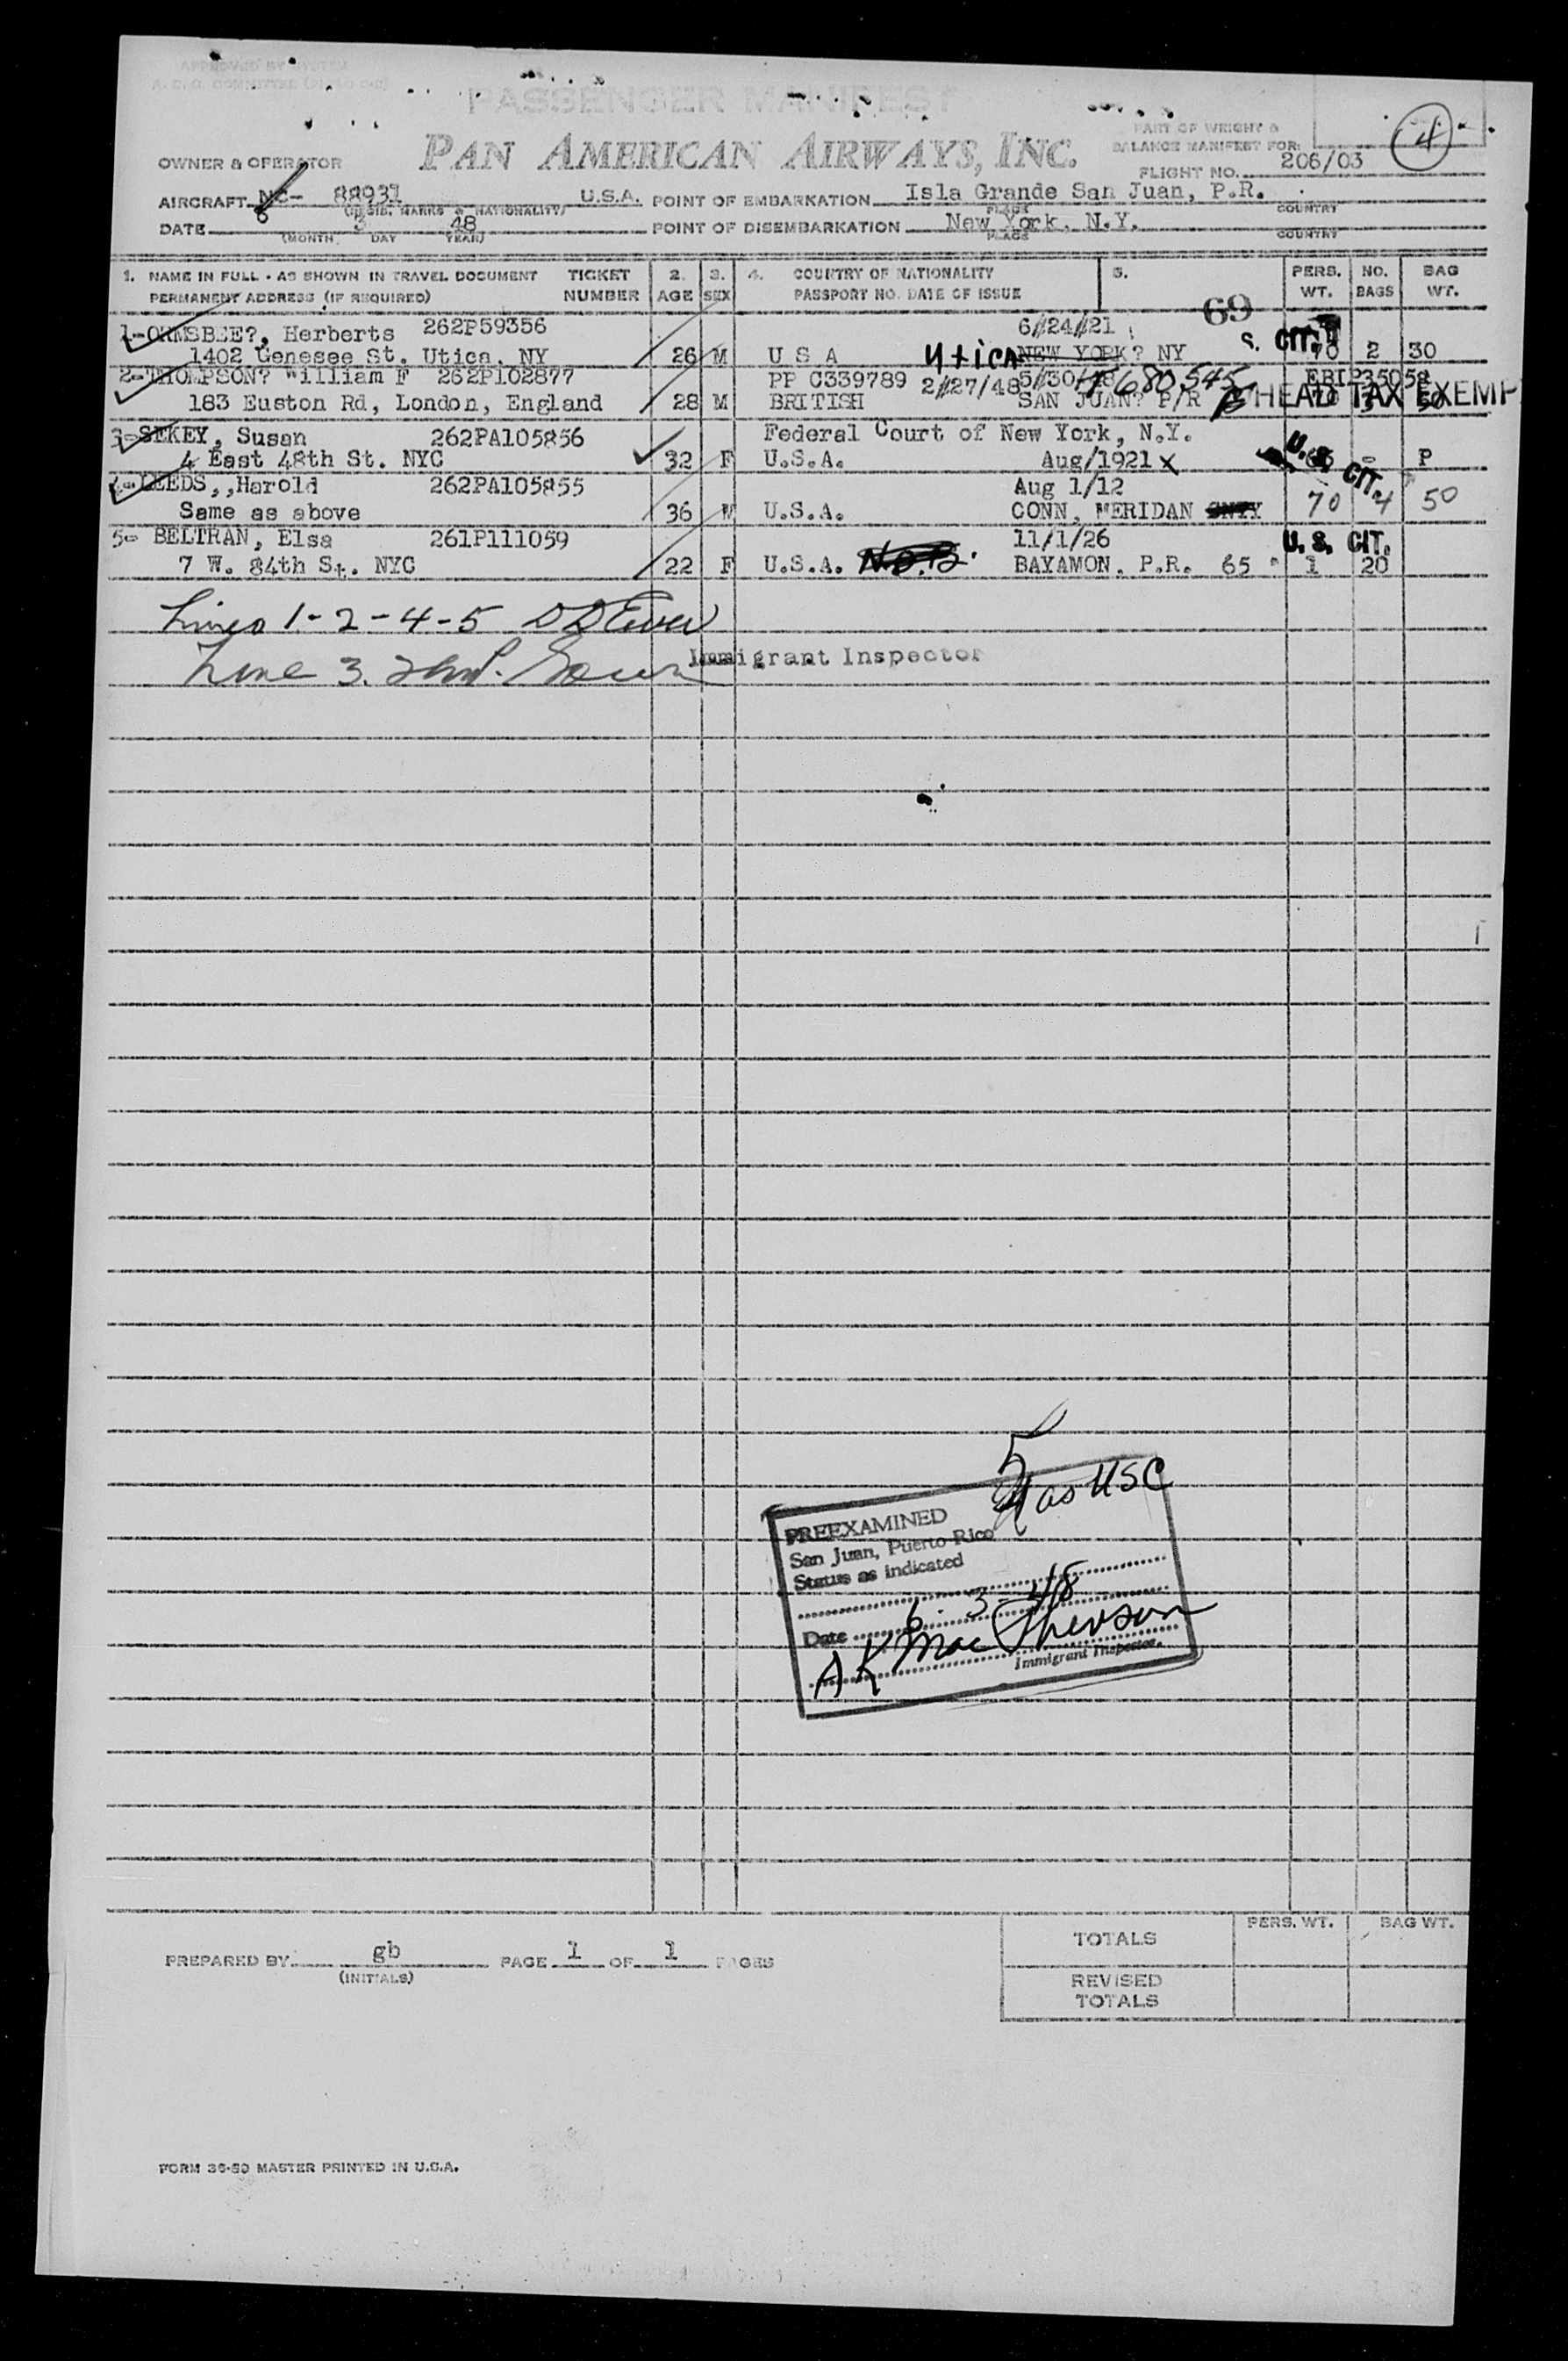 APPROVED BY SYSTEM
PASSENGER MANIFEST
PAN AMERICAN AIRWAYS, INC.
PART OF WEIGHT &
BALANCE MANIFEST FOR:
4
OWNER & OPERATOR
FLIGHT NO. 206/03
AIRCRAFT NC- 88931 U.S.A. POINT OF EMBARKATION Isla Grande San Juan, P.R.
(REGIS. MARKS & NATIONALITY) PLACE COUNTRY
DATE 6 3 48 POINT OF DISEMBARKATION New York, N.Y.
(MONTH DAY YEAR) PLACE COUNTRY
1. NAME IN FULL - AS SHOWN IN TRAVEL DOCUMENT TICKET 2. 3. 4. COUNTRY OF NATIONALITY 5. PERS. NO. BAG
PERMANENT ADDRESS (IF REQUIRED) NUMBER AGE SEX PASSPORT NO. DATE OF ISSUE WT. BAGS WT.
69
1-ORMSBEE?, Herberts 262P59356 6/24/21
1402 Genesee St. Utica, NY 26 M U S A Utica NEW YORK? NY S. CIT. 70 2 30
2-THOMPSON? William F 262P102877 PP C339789 2/27/48 5/30/48 T680,545 EBIP35058
183 Euston Rd, London, England 28 M BRITISH SAN JUAN? P/R HEAD TAX EXEMP
3-SEKEY, Susan 262PA105856 Federal Court of New York, N.Y.
4 East 48th St. NYC 32 F U.S.A. Aug/1921 X U. S. CIT. - P
4-LEEDS,,Harold 262PA105855 Aug 1/12
Same as above 36 M U.S.A. CONN, MERIDAN 70 4 50
5- BELTRAN, Elsa 261P111059 11/1/26 U. S. CIT.
7 W. 84th St. NYC 22 F U.S.A. N.O.B. BAYAMON, P.R. 65 1 20
Lines 1-2-4-5
Immigrant Inspector
Line 3.
5
4 as USC
PREEXAMINED
San Juan, Puerto Rico
Status as indicated
Date 6-3-48
A K MacPherson
Immigrant Inspector.
TOTALS PERS. WT. BAG WT.
PREPARED BY gb PAGE 1 OF 1 PAGES
(INITIALS)
REVISED
TOTALS
FORM 36-50 MASTER PRINTED IN U.S.A.